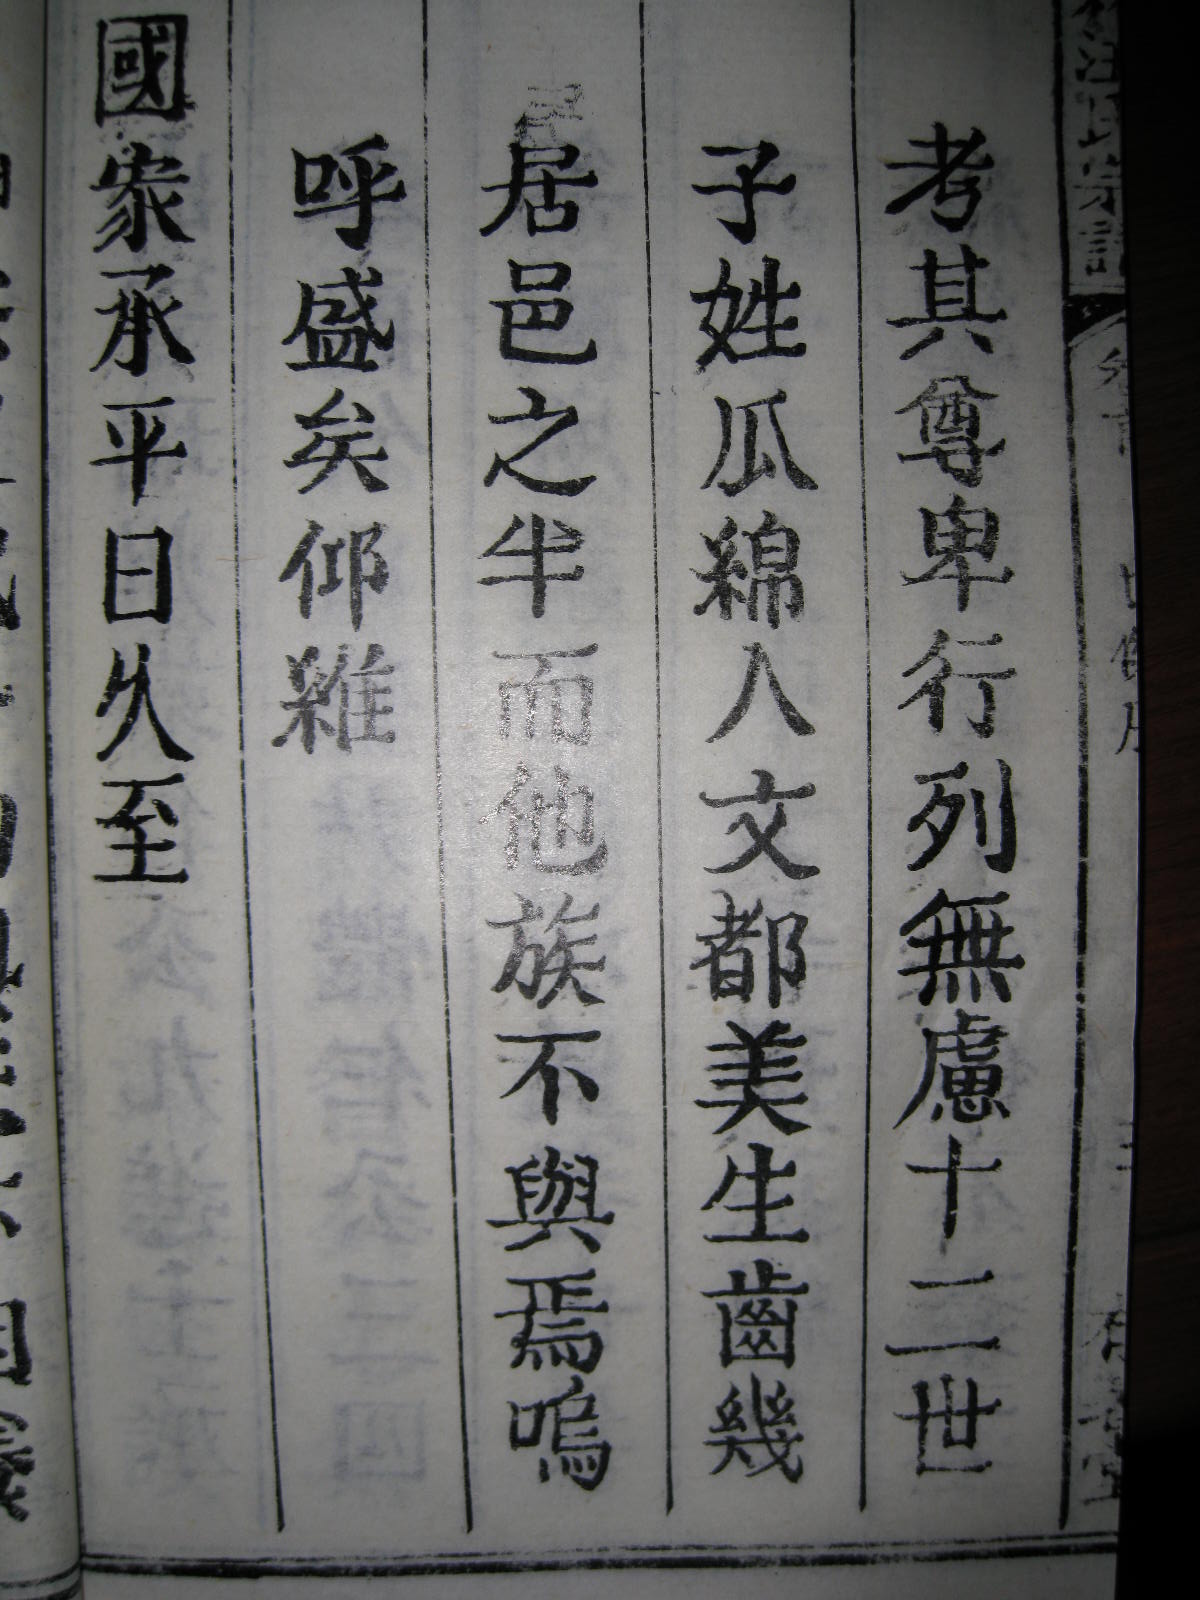 考其尊卑行列無慮十二世
子姓瓜綿人文都美生齒幾
居邑之半而他族不與焉嗚
呼盛矣仰維
國家承平日久至